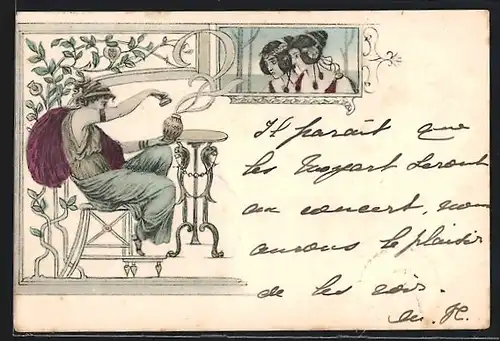 Il paraît que
les Mozart seront
au concert, nous
aurons le plaisir
de les voir.
M. H.